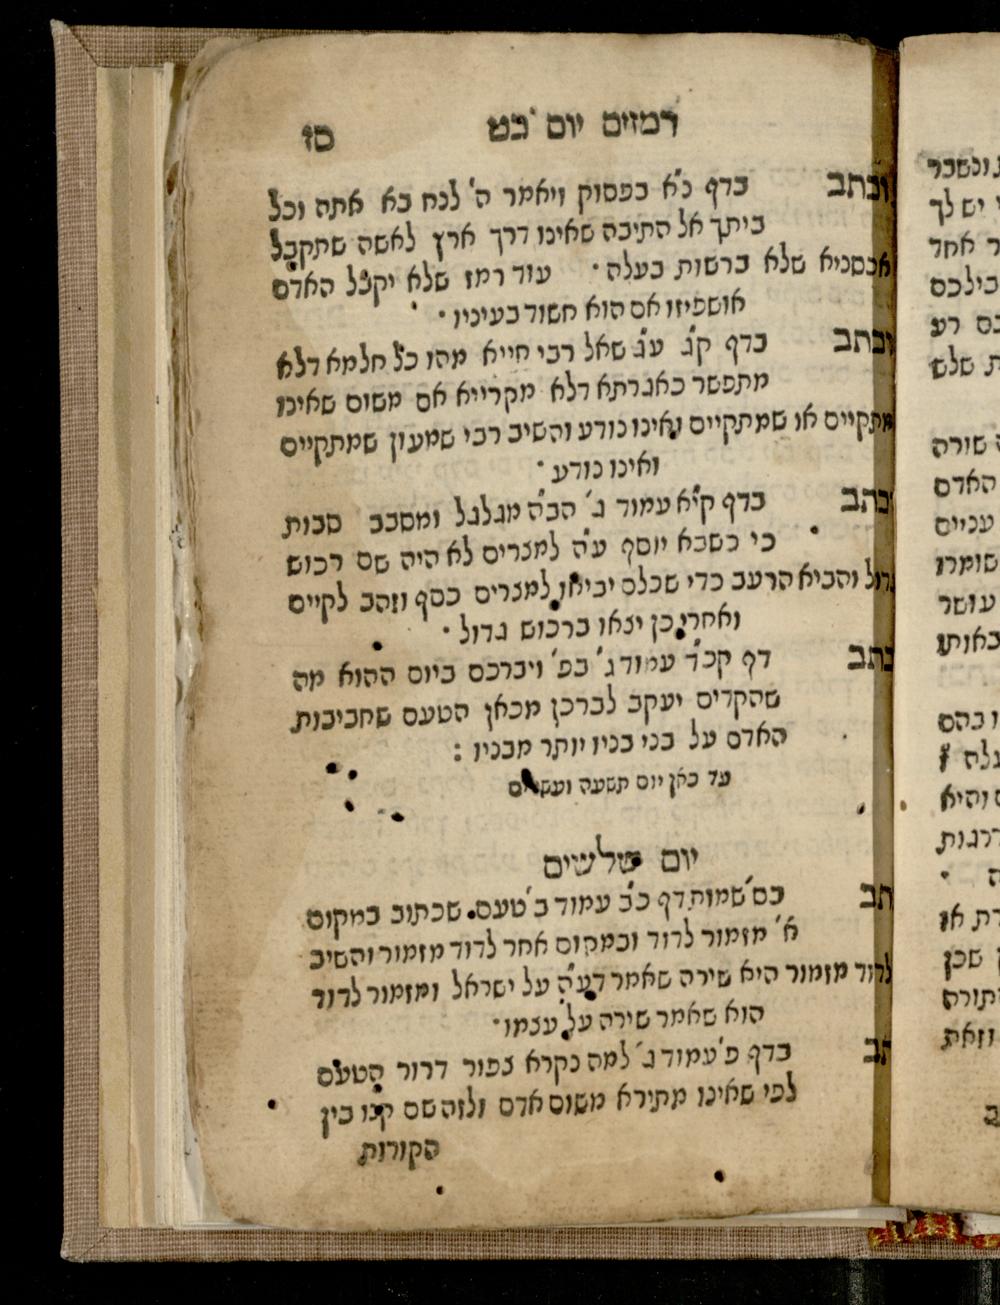 רמזים יום כט סז
וכתב בדף כ"א בפסוק ויאמר ה' לנח בא אתה וכל
ביתך אל התיבה שאינו דרך ארץ לאשה שתקבל
אכסניא שלא ברשות בעלה · עוד רמז שלא יקבל האדם
אושפיזו אם הוא חשוד בעיניו ·
וכתב בדף ק"ג ע"ג שאל רבי חייא מהו כל חלמא דלא
מתפשר כאגרתא דלא מקרייא אם משום שאינו
מתקיים או שמתקיים ואינו נודע והשיב רבי שמעון שמתקיים
ואינו נודע ·
וכתב בדף קי"א עמוד ג' הב"ה מגלגל ומסבב סבות
כי כשבא יוסף ע"ה למצרים לא היה שם רכוש
גדול והביא הרעב כדי שכלם יביאו למצרים כסף וזהב לקיים
ואחרי כן יצאו ברכוש גדול ·
כתב דף קכ"ד עמוד ג' בפ' ויברכם ביום ההוא מה
שהקדים יעקב לברכן מכאן הטעם שחביבות
האדם על בני בניו יותר מבניו :
עד כאן יום תשעה ועשרים
יום שלשים
תב בס' שמות דף כ"ב עמוד ב' טעם שכתוב במקום
א' מזמור לדוד ובמקום אחר לדוד מזמור והשיב
לדוד מזמור היא שירה שאמר דע"ה על ישראל ומזמור לדוד
הוא שאמר שירה על עצמו ·
תב בדף פ' עמוד ג' למה נקרא צפור דרור הטעם
לפי שאינו מתירא משום אדם ולזה שם קנו בין
הקורות
ונשבר
יש לך
ר אחד
בילכם
רע
ת שלש
שורה
האדם
עניים
שומרו
עושר
באותו
ו בהם
עלה
והיא
דרגות
ה ·
רת או
שכן
תורה
וזאת